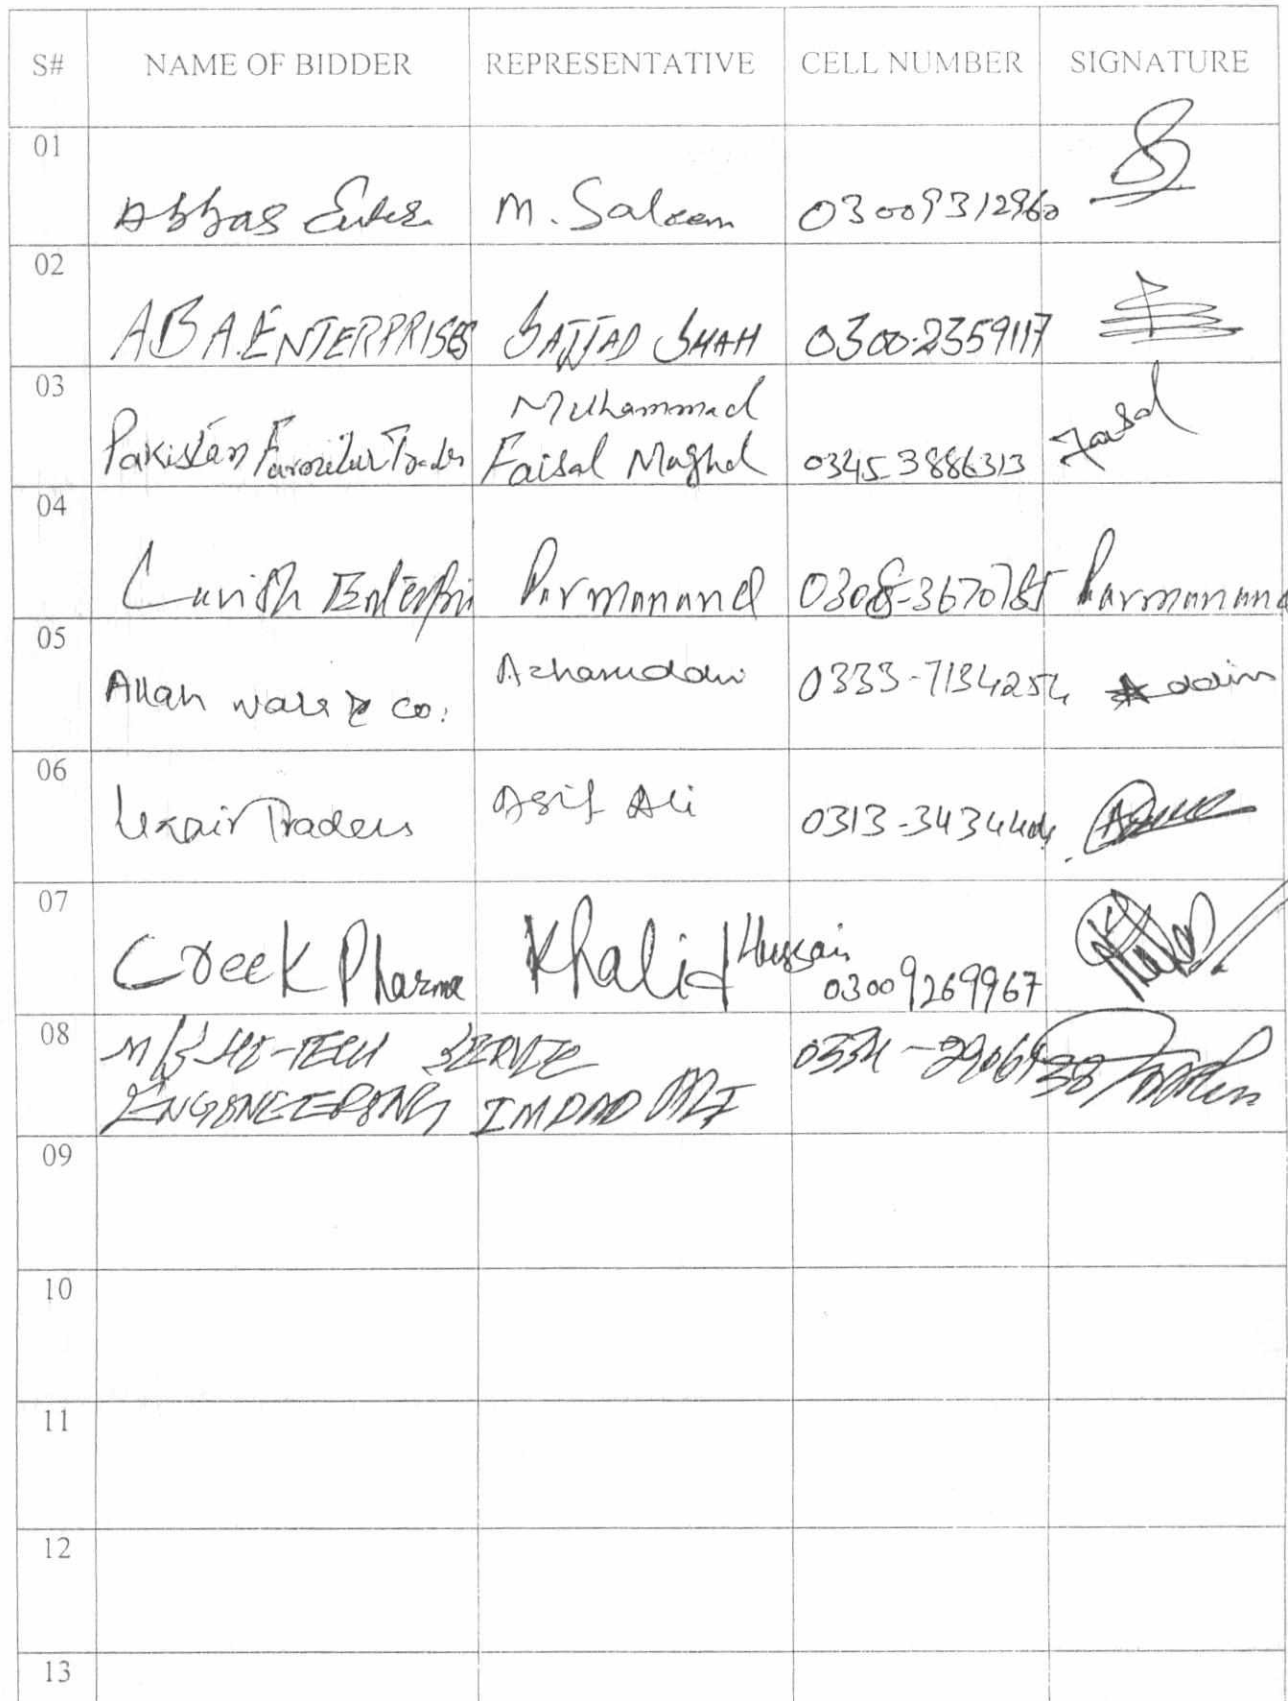 S# NAME OF BIDDER REPRESENTATIVE CELL NUMBER SIGNATURE
01
Abbas Enter. M. Saleem 03009312960
02
ABA.ENTERPRISES SAJJAD SHAH 0300-2359117
03
Muhammad
Pakistan Furnitur Trader Faisal Mughal 03453886313 Faisal
04
Lavish Enterpri Parmanand 0308-3670785 Parmanand
05
Allah wala & co. Azharuddin 0333-7134254 ddin
06
Uzair Traders Asif Ali 0313-3434404
07
Creek Pharma Khalid Hussain 03009269967
08
M/S HI-TECH SERVIC
ENGINEERING IMDAD ALI
09
10
11
12
13